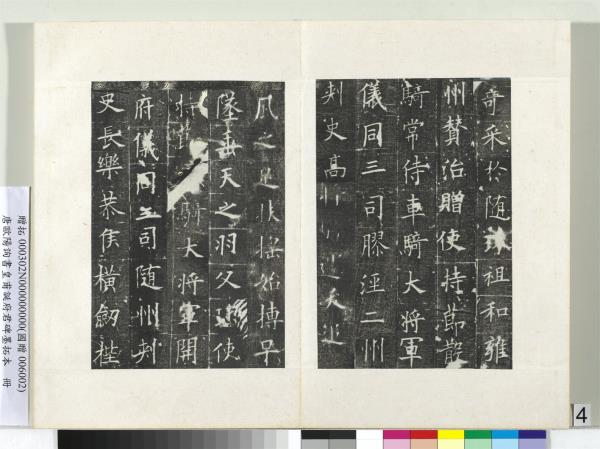 奇采於随珠祖和雍
州賛治贈使持節散
騎常侍車騎大將軍
儀同三司膠涇二州
刺史高夭追
風之足扶搖始摶早
墜垂天之羽父使
持節騎大將軍開
府儀同三司随州刺
史長樂恭侯橫劒梐
贈拓 000302N000000000(國贈 006002)
唐歐陽詢書皇甫誕府君碑墨拓本 冊
4